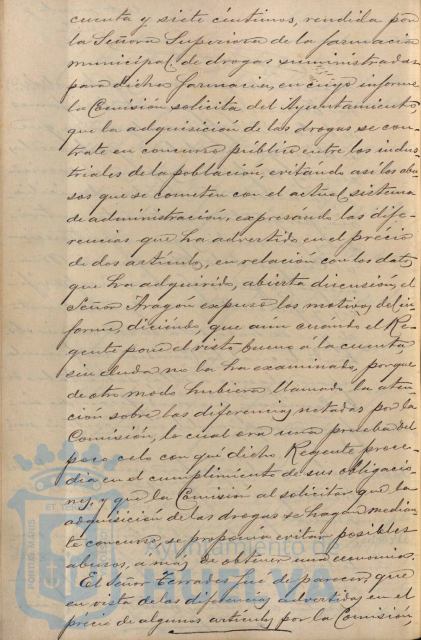 cuenta y siete céntimos, rendida por
la Señora Superiora de la farmacia
municipal, de drogas suministradas
para dicha farmacia, en cuyo informe
la Comisión solicita del Ayuntamiento,
que la adquisición de las drogas se con-
trate en concurso público entre los indus-
triales de la poblacion, evitándo asi los abu-
sos que se cometen con el actual sistema
de administración, expresándo las dife-
rencias que ha advertido en el précio
de dos articulos, en relación con los datos
que ha adquirido, abierta discusión, el
Señor Aragón expuso los motivos del in-
forme, diciéndo, que aún cuándo el Re-
gente pone el visto bueno á la cuenta,
sin duda no la ha examinado, porque
de otro modo hubiera llamado la aten-
ción sobre las diferencias notadas por la
Comisión, lo cual era una prueba del
poco celo con qué dicho Regente proce-
dia en el cumplimiento de sus obligacio-
nes, y que la Comisión al solicitar que la
adquisición de las drogas se haga median-
te concurso, se proponia evitar posibles
abusos, a mas de obtener una economia.
El Señor Terrades fué de parecer, que
en vista de las diferencias advertidas en el
precio de algunos articulos por la Comisión
Ayuntamiento